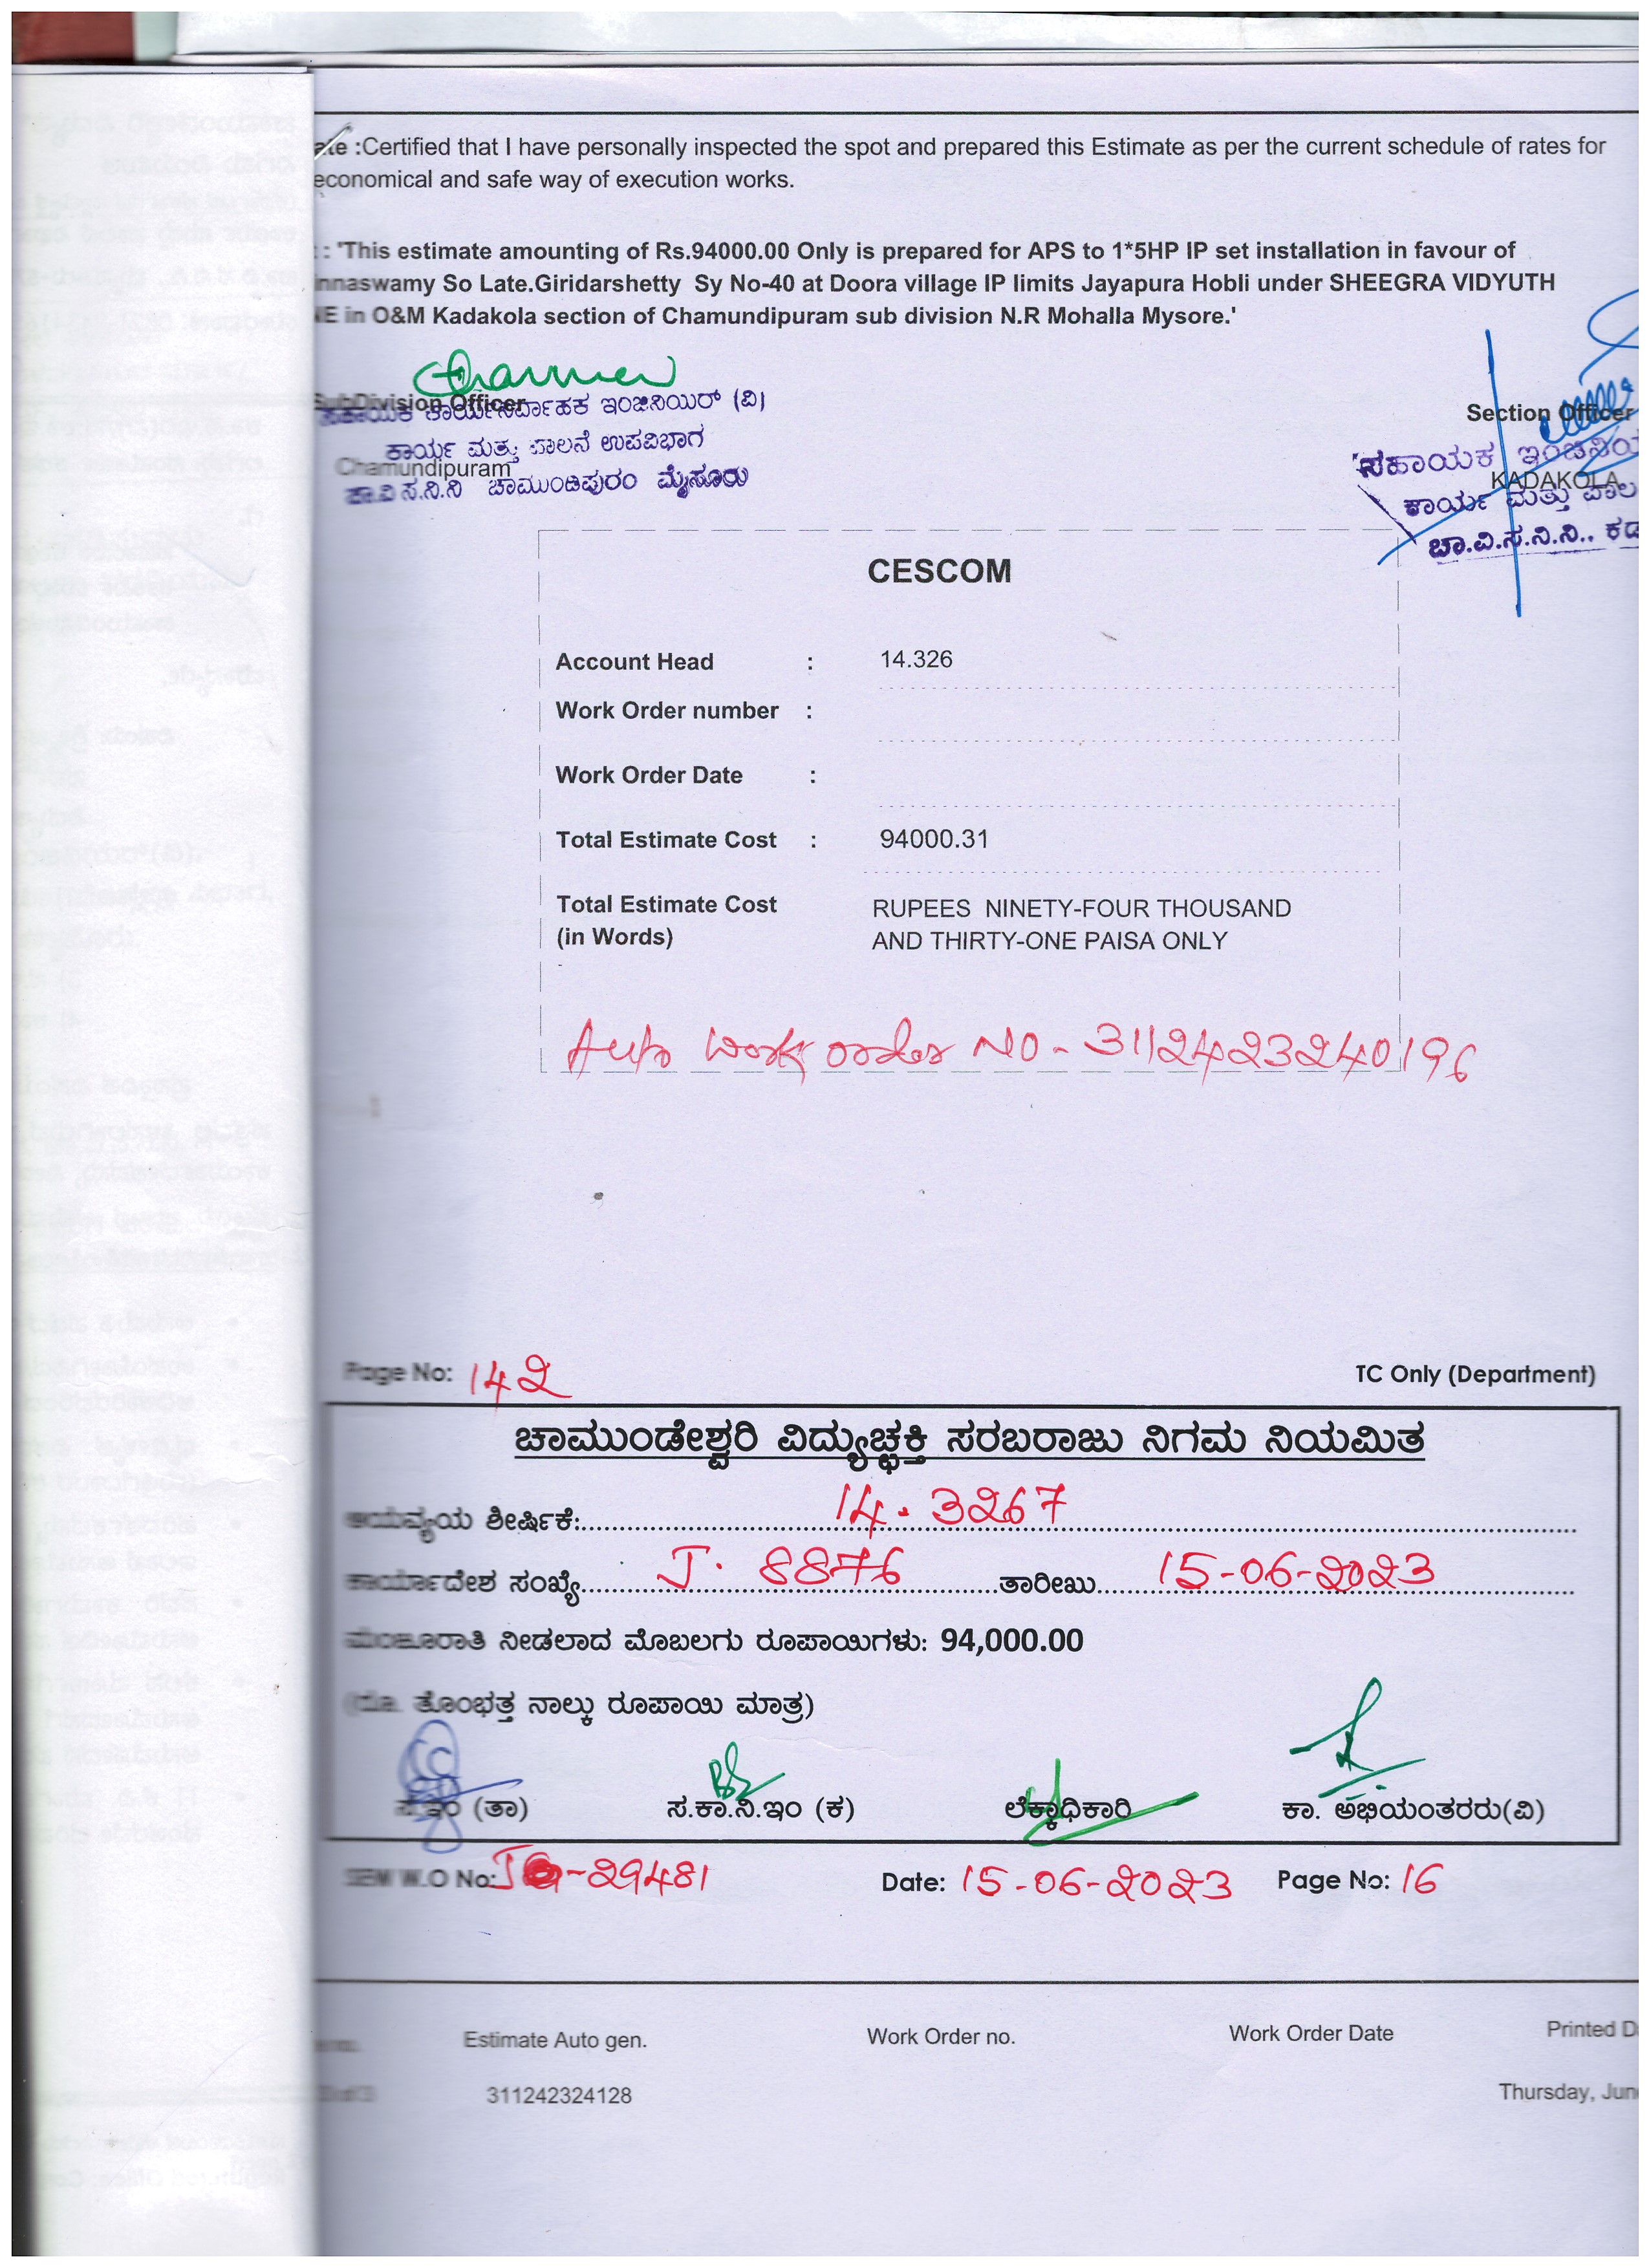 :Certified that I have personally inspected the spot and prepared this Estimate as per the current schedule of rates for
economical and safe way of execution works.
: 'This estimate amounting of Rs.94000.00 Only is prepared for APS to 1*5HP IP set installation in favour of
nnaswamy So Late.Giridarshetty Sy No-40 at Doora village IP limits Jayapura Hobli under SHEEGRA VIDYUTH
in O&M Kadakola section of Chamundipuram sub division N.R Mohalla Mysore.'
SubDivision Officer
ಸಹಾಯಕ ಕಾರ್ಯನಿರ್ವಾಹಕ ಇಂಜಿನಿಯರ್ (ವಿ)
ಕಾರ್ಯ ಮತ್ತು ಪಾಲನೆ ಉಪವಿಭಾಗ
Chamundipuram
ಚಾ.ವಿ.ಸ.ನಿ.ನಿ ಚಾಮುಂಡಿಪುರಂ ಮೈಸೂರು
Section Officer
ಸಹಾಯಕ ಇಂಜಿನಿಯ
KADAKOLA
ಕಾರ್ಯ ಮತ್ತು ಪಾಲ
ಚಾ.ವಿ.ಸ.ನಿ.ನಿ.. ಕಡ
CESCOM
Account Head : 14.326
Work Order number :
Work Order Date :
Total Estimate Cost : 94000.31
Total Estimate Cost RUPEES NINETY-FOUR THOUSAND
(in Words) AND THIRTY-ONE PAISA ONLY
Auto work order NO - 3112423240196
Page No: 142 TC Only (Department)
ಚಾಮುಂಡೇಶ್ವರಿ ವಿದ್ಯುಚ್ಛಕ್ತಿ ಸರಬರಾಜು ನಿಗಮ ನಿಯಮಿತ
ಆಯವ್ಯಯ ಶೀರ್ಷಿಕೆ: 14.3267
ಕಾರ್ಯಾದೇಶ ಸಂಖ್ಯೆ J. 8876 ತಾರೀಖು 15-06-2023
ಮಂಜೂರಾತಿ ನೀಡಲಾದ ಮೊಬಲಗು ರೂಪಾಯಿಗಳು: 94,000.00
(ರೂ. ತೊಂಭತ್ತ ನಾಲ್ಕು ರೂಪಾಯಿ ಮಾತ್ರ)
ಸ.ಇಂ (ತಾ) ಸ.ಕಾ.ನಿ.ಇಂ (ಕ) ಲೆಕ್ಕಾಧಿಕಾರಿ ಕಾ. ಅಭಿಯಂತರರು(ವಿ)
W.O No: J -29481 Date: 15-06-2023 Page No: 16
Estimate Auto gen. Work Order no. Work Order Date Printed D
311242324128 Thursday, Jun